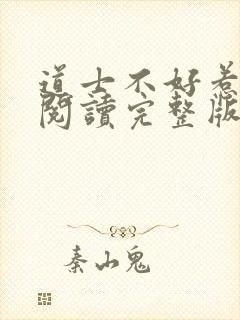 道士不好惹
閱讀完整版
秦山鬼